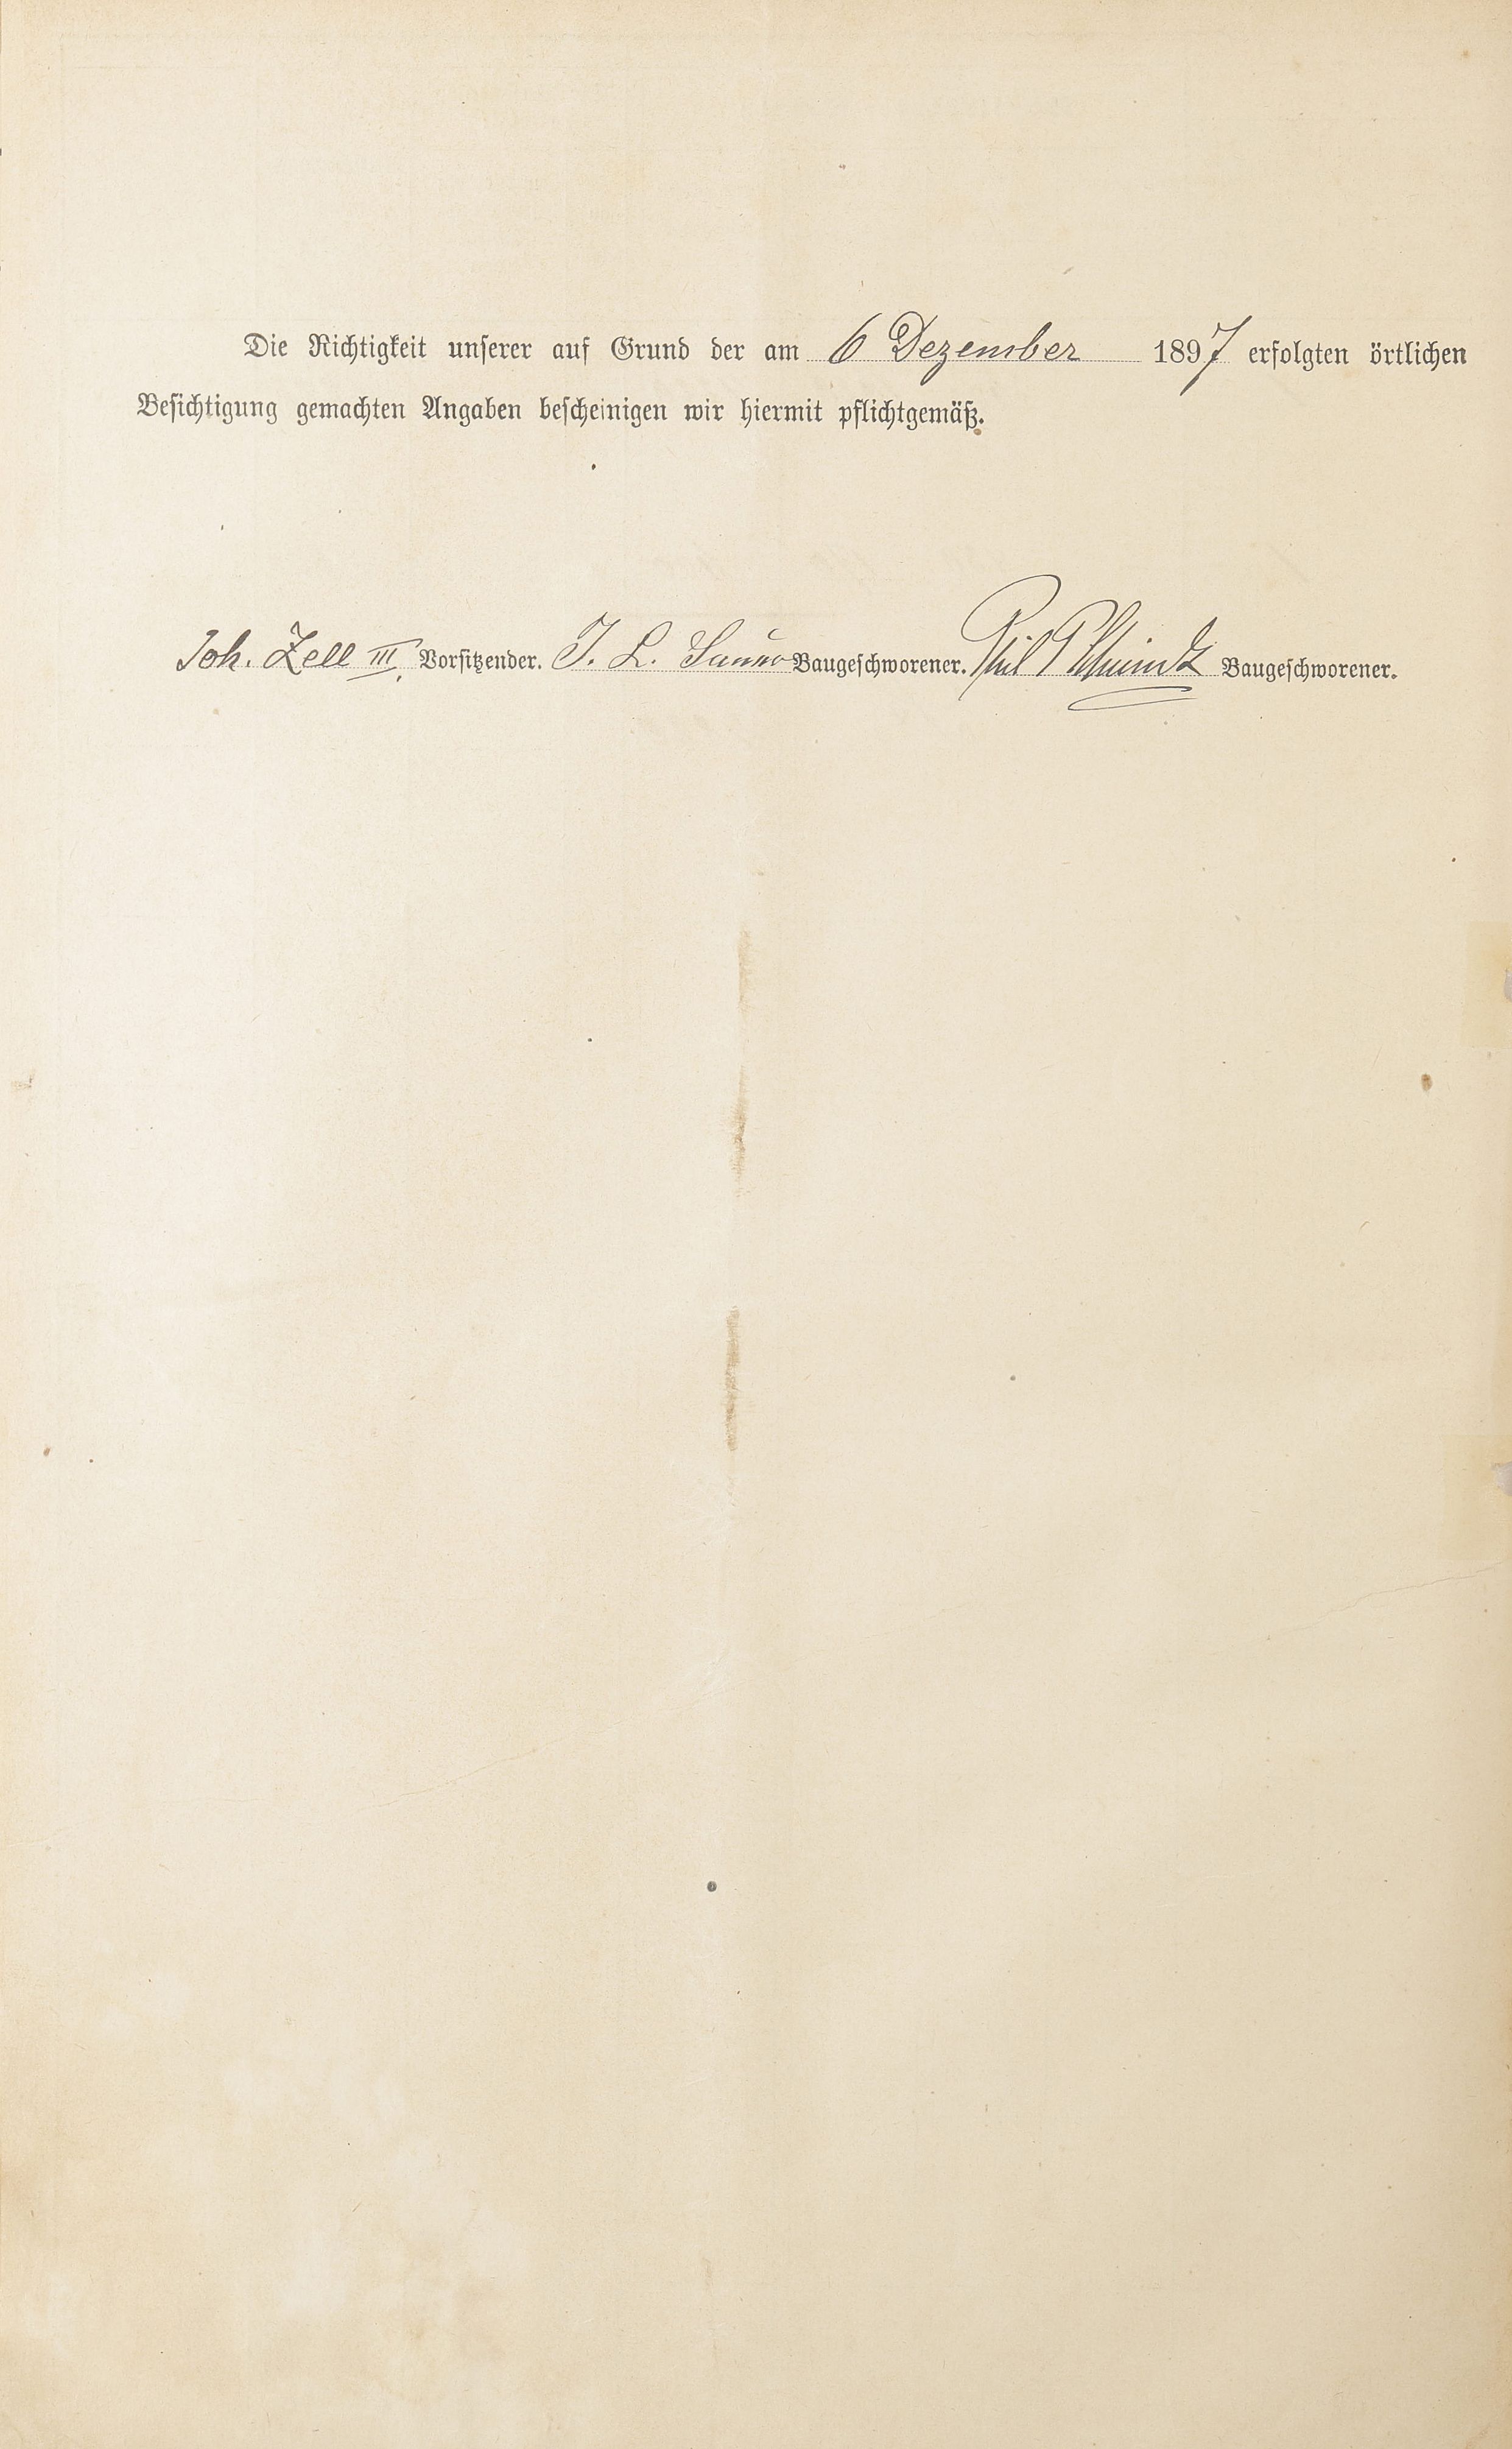 Die Richtigkeit unserer auf Grund der am 6 Dezember 1897 erfolgten örtlichen
Besichtigung gemachten Angaben bescheinigen wir hiermit pflichtgemäß.
Joh. Zell III, Vorsitzender. J. L. Baugeschworener. Phil Baugeschworener.